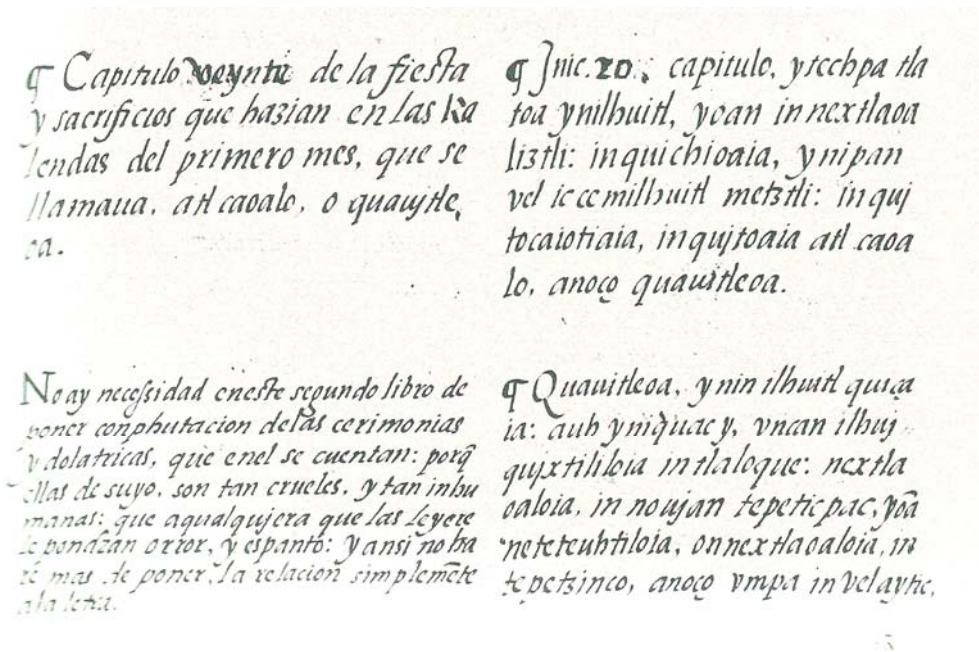 ¶ Capitulo veynte de la fiesta
y sacrificios que hazian en las ka
lendas del primero mes, que se
llamaua, atl caoalo, o quauitle,
ca.
No ay necessidad eneste segundo libro de
poner conphutacion delas cerimonias
ydolatricas, que enel se cuentan: porq̃
ellas de suyo, son tan crueles, y tan inhu
manas: que aqualqujera que las leyere
le pondran orror, y espanto: y ansi no ha
re mas de poner, la relacion simplemẽte
ala letra.
¶ Jnic .20. capitulo, ytechpa tla
toa ynilhuitl, yoan in nextlaoa
liztli: in quichioaia, ynipan
vel ic cemilhuitl metztli: in quj
tocaiotiaia, in qujtoaia atl caoa
lo, anoço quauitleoa.
¶ Quauitleoa, ynin ilhuitl quiça
ia: auh yniquac y, vncan ilhuj
qujxtililoia in tlaloque: nextla
oaloia, in noujan tepeticpac, yoã
neteteuhtiloia, onnextlaoaloia, in
tepetzinco, anoço vmpa in vel aytic,